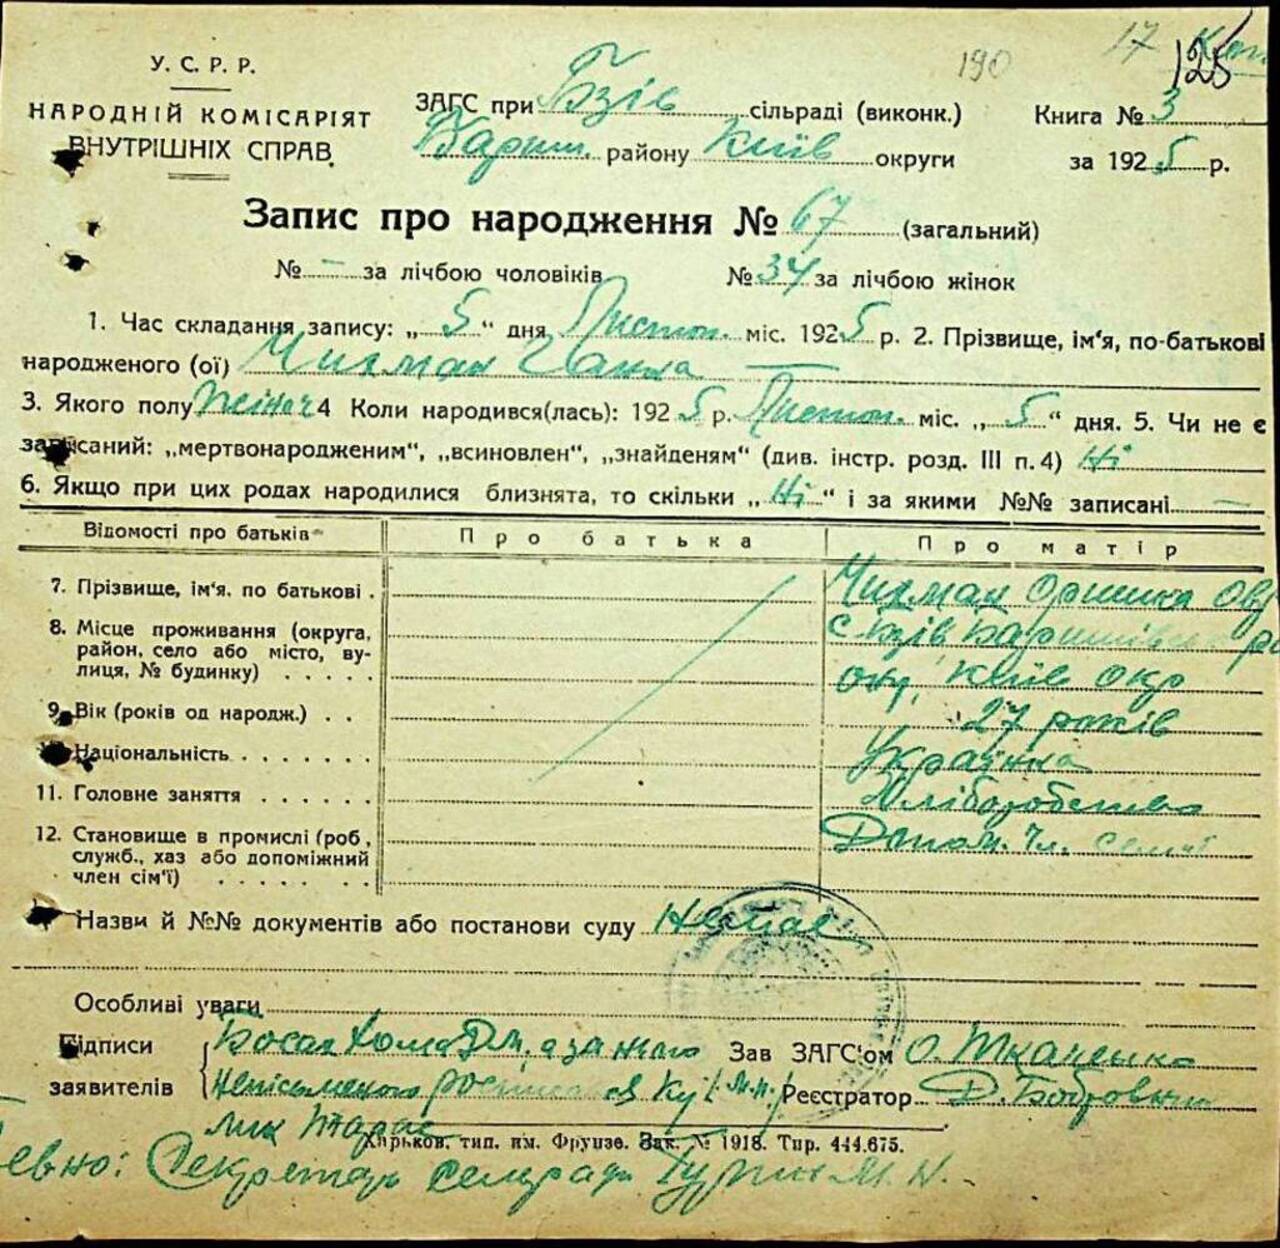 190 17
125
У. С. Р. Р.
НАРОДНІЙ КОМІСАРІЯТ
ВНУТРІШНІХ СПРАВ.
ЗАГС при Бзів сільраді (виконк.)
Книга № 3
Бариш. району Київ округи
за 1925 р.
Запис про народження № 67 (загальний)
№ — за лічбою чоловіків № 34 за лічбою жінок
1. Час складання запису: „ 5 “ дня Листоп. міс. 1925 р. 2. Прізвище, ім‘я, по-батькові
народженого (ої) Чихман Ганна —
3. Якого полу жіноч 4 Коли народився(лась): 1925 р. Листоп. міс. „ 5 “ дня. 5. Чи не є
записаний: „мертвонародженим“, „всиновлен“, „знайденям“ (див. інстр. розд. III п. 4) Ні
6. Якщо при цих родах народилися близнята, то скільки „ Ні “ і за якими №№ записані —
Відомості про батьків Про батька Про матір
7. Прізвище, ім‘я, по батькові . Чихман Оришка
8. Місце проживання (округа, с Бзів Баришівськ
район, село або місто, ву-
лиця, № будинку) . . . . . Київ окр
9. Вік (років од народж.) . . 27 років
10. Національність . . . . . . . Українка
11. Головне заняття . . . . . . Хліборобство
12. Становище в промислі (роб., Допом. чл. семї
служб., хаз або допоміжний
член сім‘ї) . . . . . . .
Назви й №№ документів або постанови суду Немає
Особливі уваги
Підписи Босак Хома Дм, а за нього Зав ЗАГС‘ом О. Ткаченко
заявителів неписьменого росписався Ку /м.п./ Реєстратор Д. Бобровник
лик Тарас
Харьков. тип. им. Фрунзе. Зак. № 1918. Тир. 444.675.
евно: Секретарь сельради